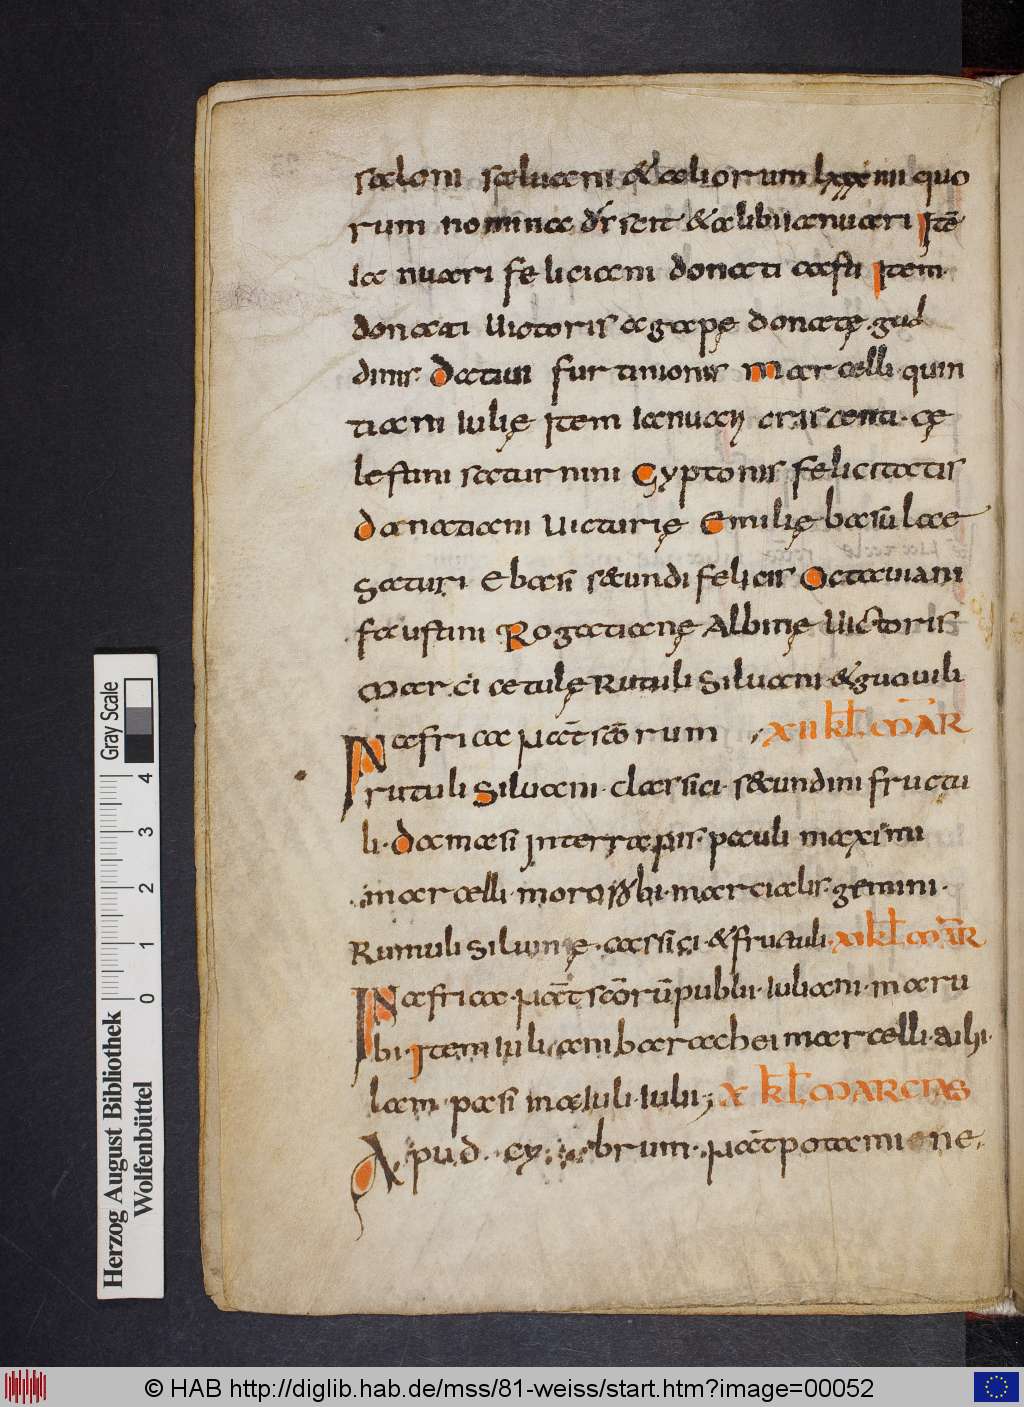 saloni saluani & aliorum lxxxiiii quo
rum nomina ds scit & alibi ianuari Itē
Ia nuari feliciani donati casti Item
donati Uictoris agapę donatę. gud
dinis. Datiui furtinionis Marcelli. quin
tiani Iulię Item Ianuarii criscenti. cę
lestini saturnini Cyptonis felicitatis
Donatiani Uicturię Emilię basulae
Saturi Ebasi secundi felicis Octauiani
faustini Rogatianę Albinę Uictoris
Mar.ci catulę Rutuli Siluani. & guduili
In africa pact scōrum XII kł. MAR
rutuli Siluani. classici. secundini fructu
li. Damasi Interrapis. pauli maximi
marcelli. marcialis. gemini.
Rumuli Siluinę. cassici. & fructuli. XI kł MAR
In africa. pact scōrū publii. Iuliani. maru
bi. Item Iuliani barachei marcelli.
lam. pasi maIuli. Iulii; X kł. MARCIAS
Apud. cy brum. pact potamione.
Herzog August Bibliothek
Wolfenbüttel
0 1 2 3 4
Gray Scale
© HAB http://diglib.hab.de/mss/81-weiss/start.htm?image=00052